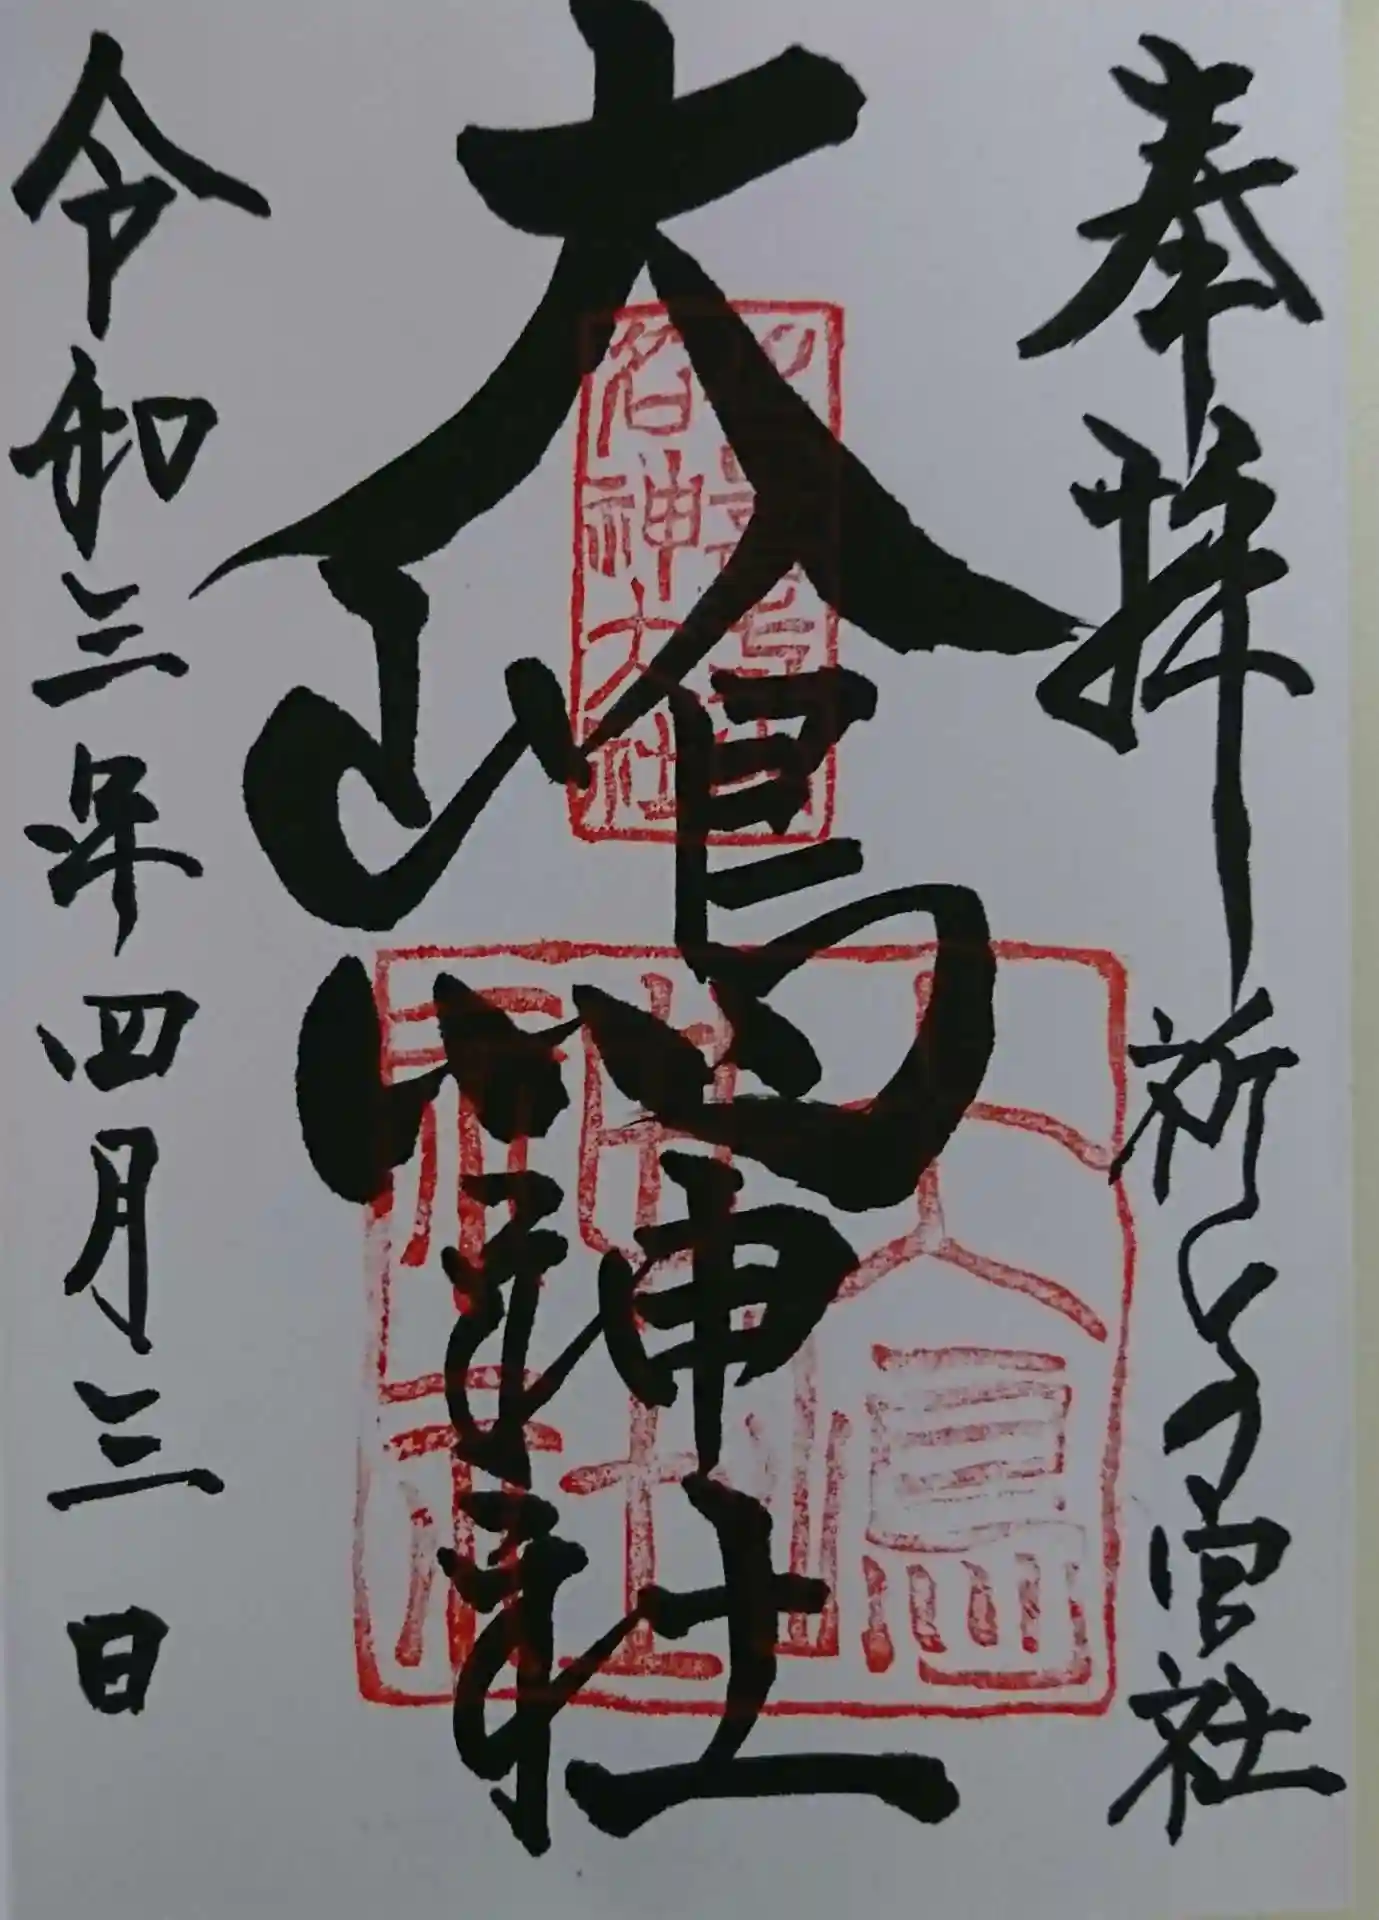 奉拝 祈 の宮社
大嶋神社
令和三年四月三日
延喜式内
名神大社
大嶋
神社